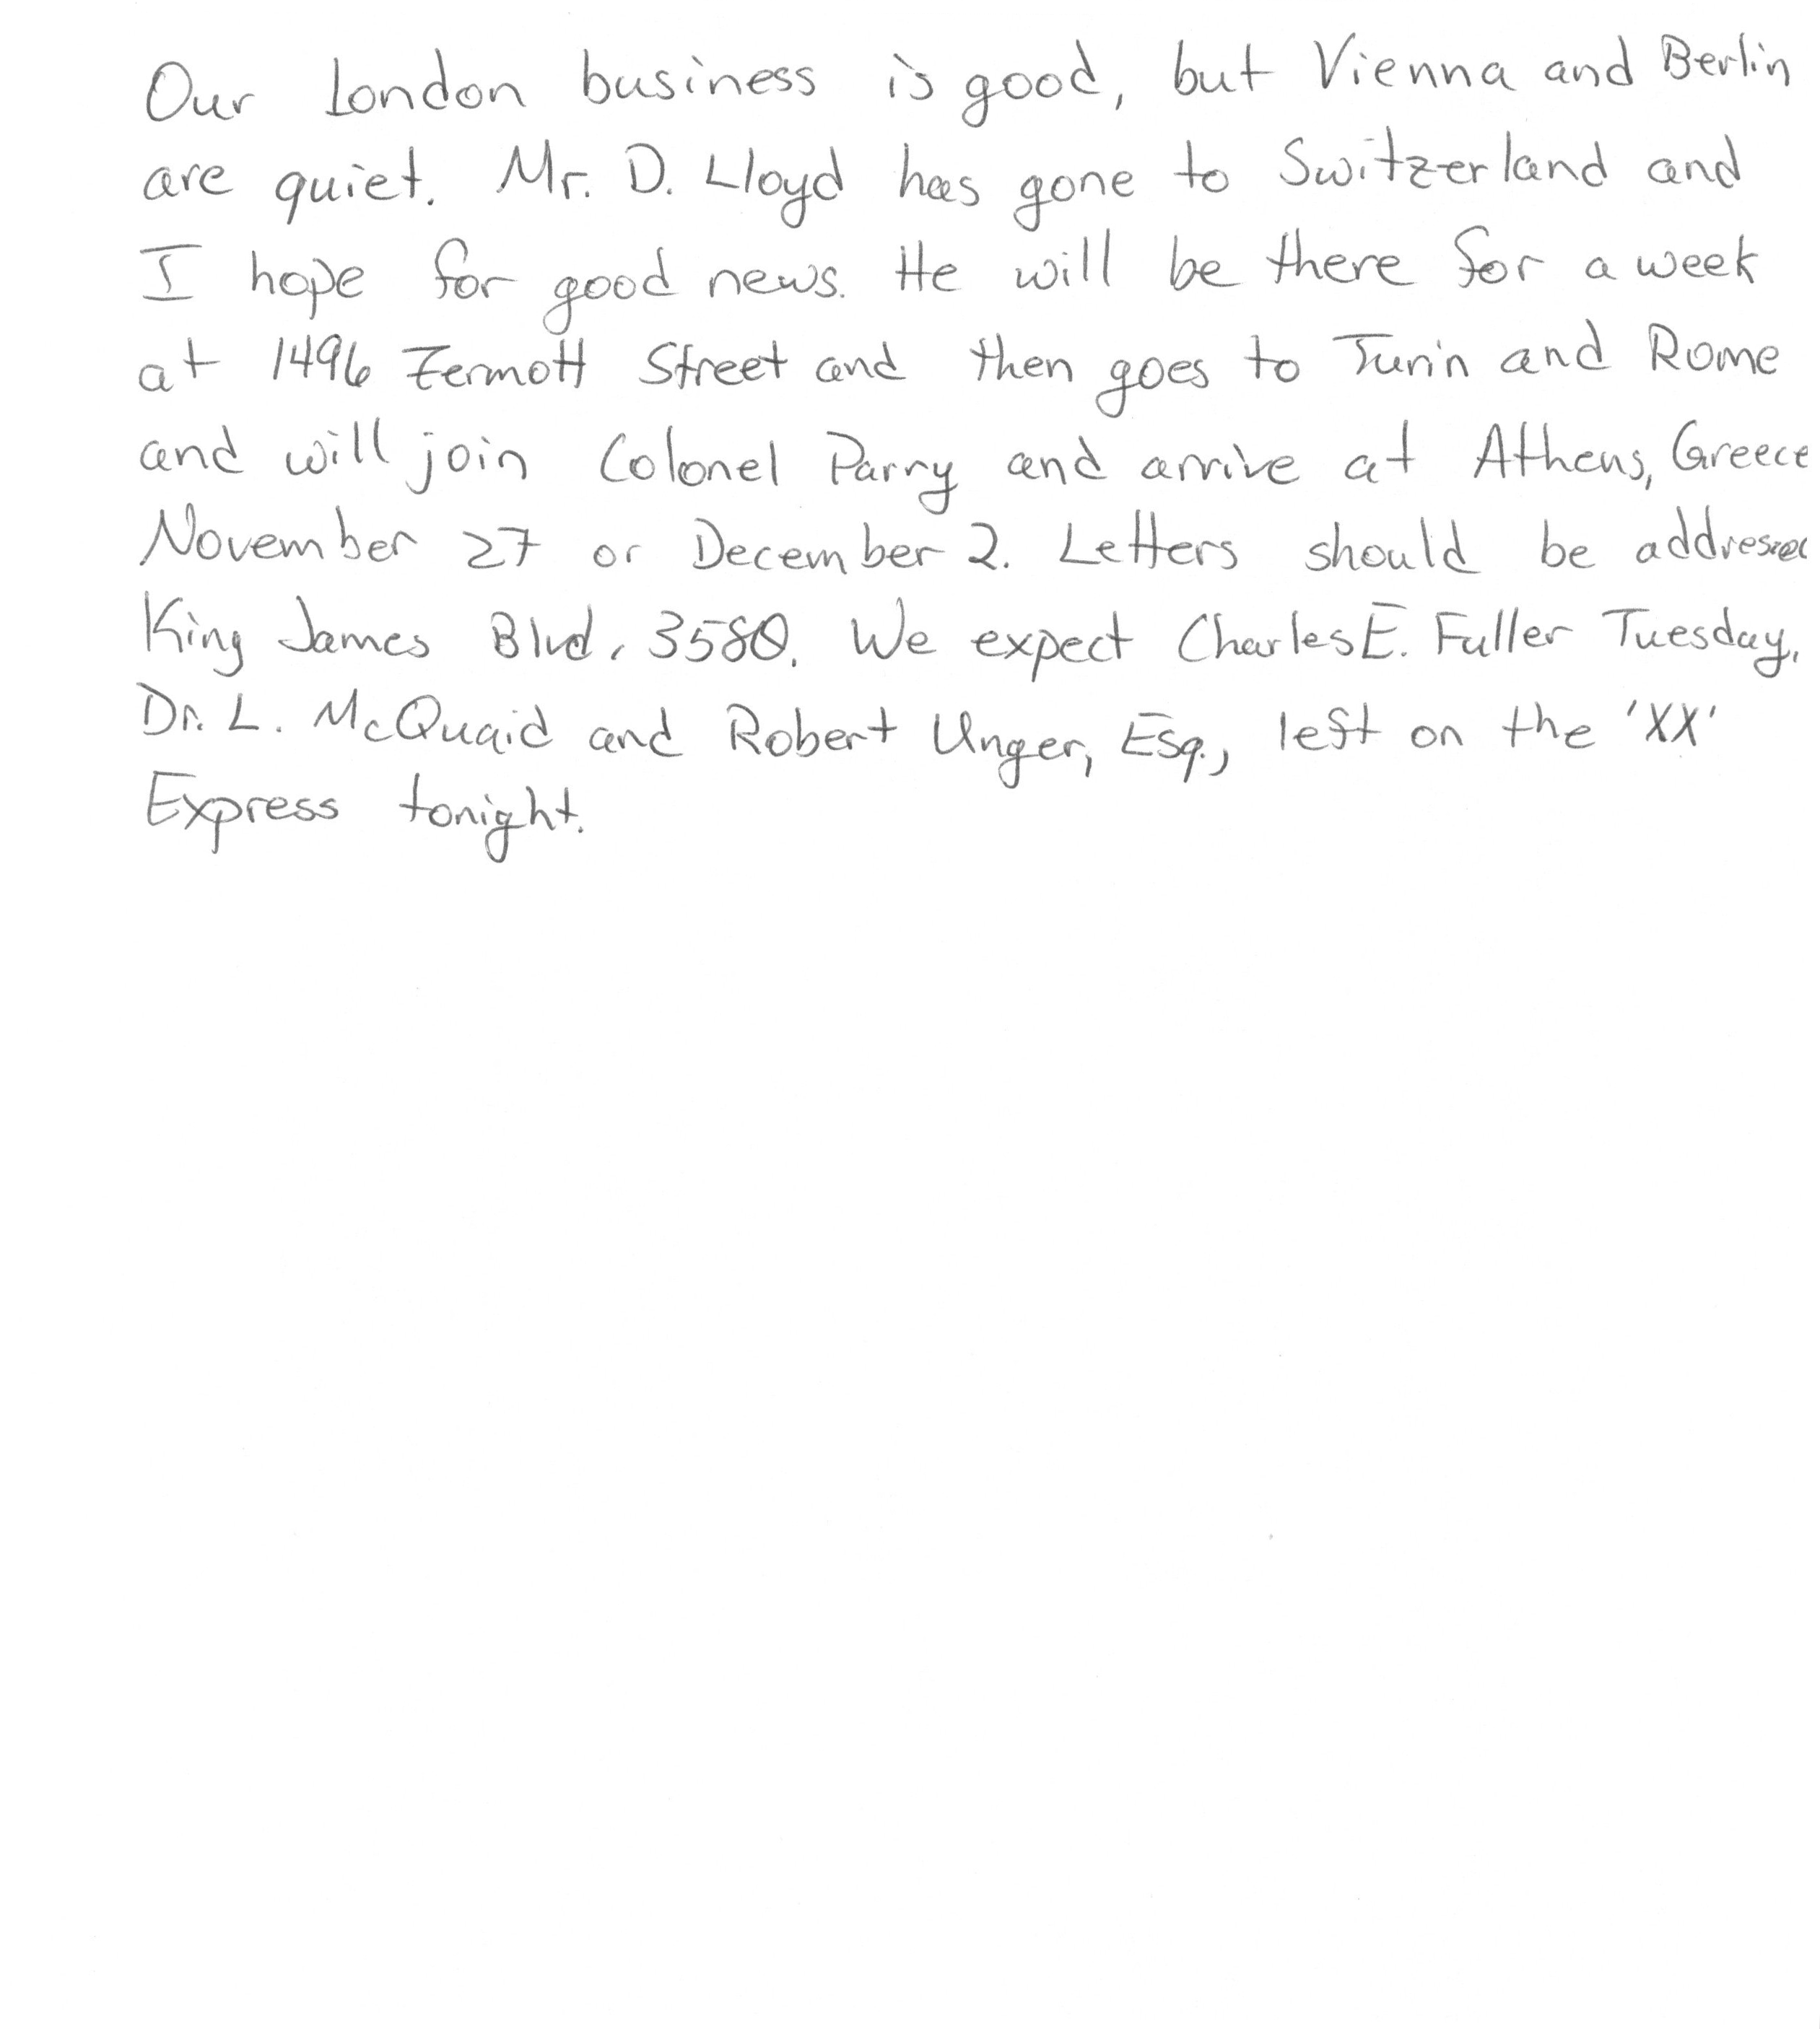 Our London business is good, but Vienna and Berlin
are quiet. Mr. D. Lloyd has gone to Switzerland and
I hope for good news. He will be there for a week
at 1496 Zermott Street and then goes to Turin and Rome
and will join Colonel Parry and arrive at Athens, Greece
November 27 or December 2. Letters should be addressed
King James Blvd. 3580. We expect Charles E. Fuller Tuesday.
Dr. L. McQuaid and Robert Unger, Esq., left on the 'XX'
Express tonight.